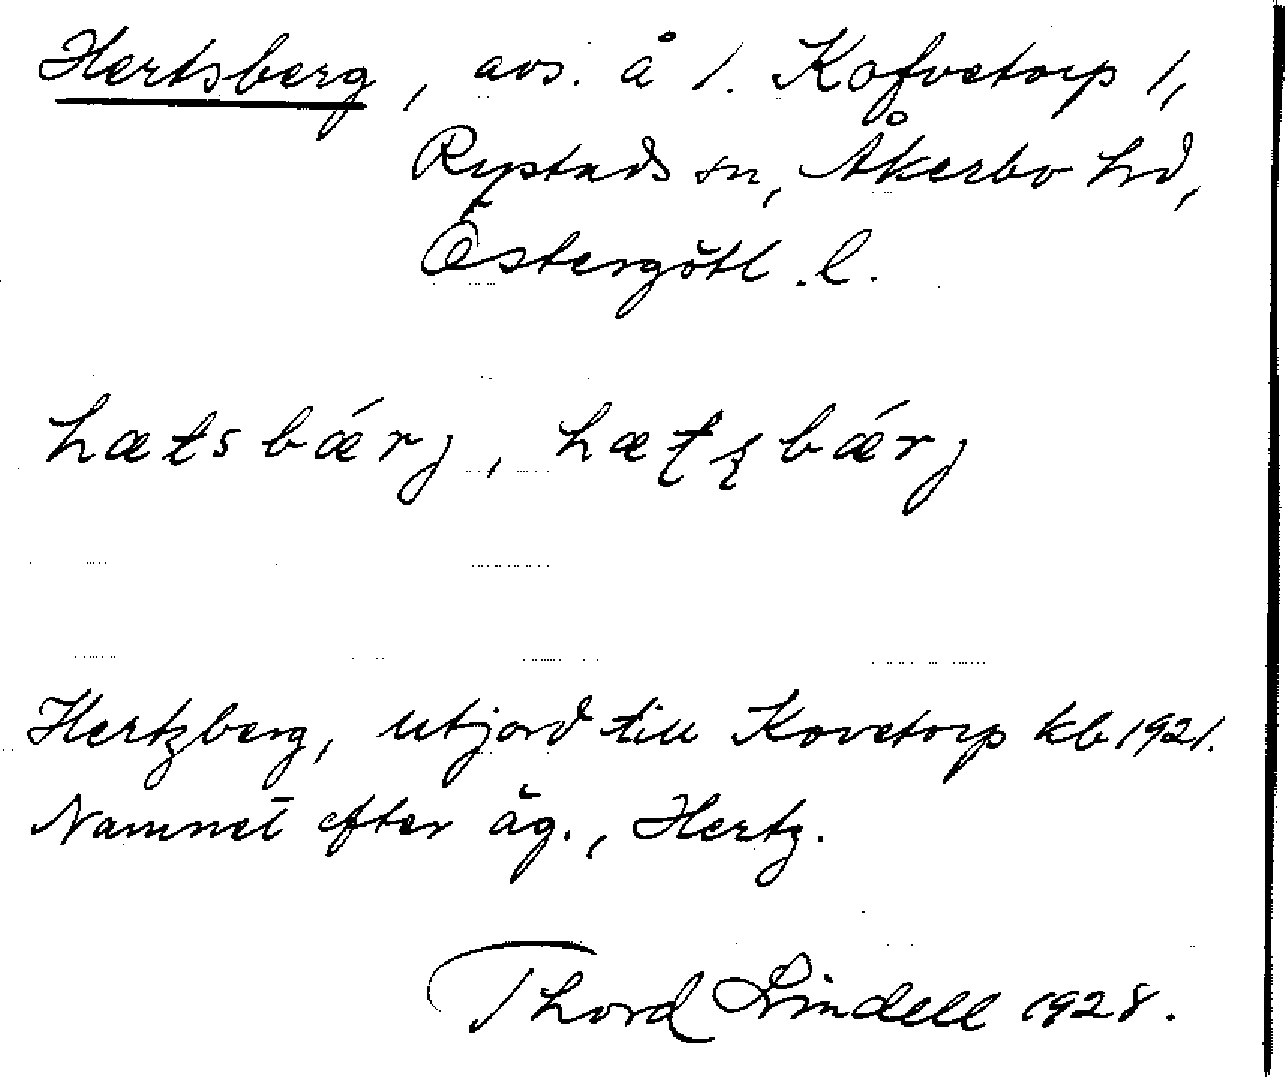 Hertsberg, avs. å 1. Kofvetorp 1,
Rystads sn, Åkerbo hd,
Östergötl. l.
hætsbǽrj, hæt̢ʂbǽrj
Hertzberg, utjord till Kovetorp kb 1921.
Namnet efter äg., Hertz.
Thord Lindell 1928.